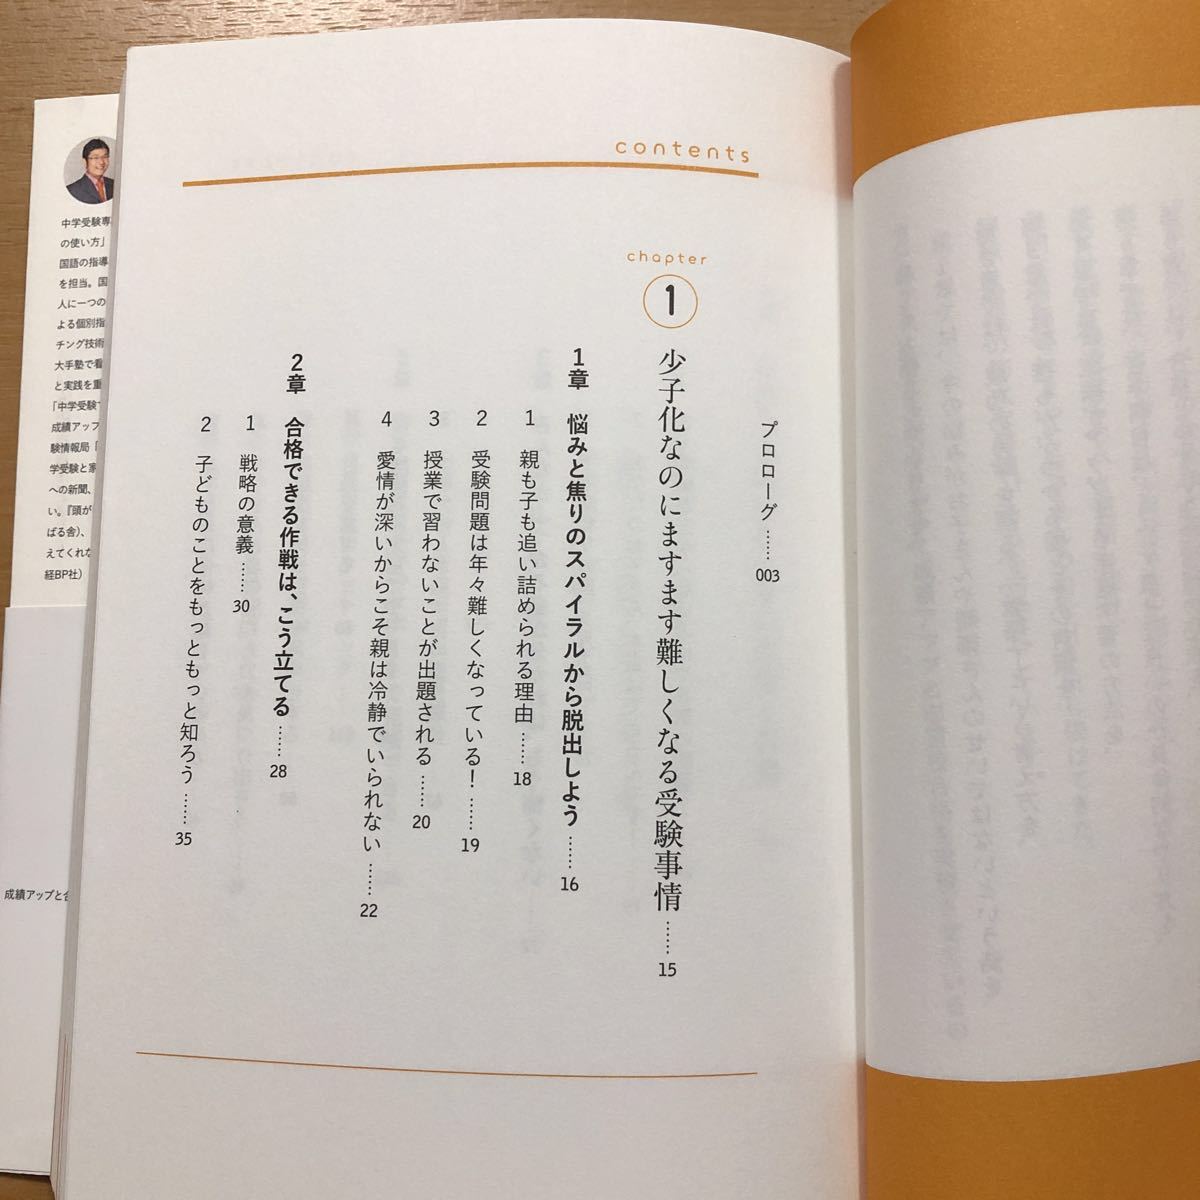 contents
プロローグ……003
chapter
1
少子化なのにますます難しくなる受験事情……15
1章 悩みと焦りのスパイラルから脱出しよう……16
1 親も子も追い詰められる理由……18
2 受験問題は年々難しくなっている!……19
3 授業で習わないことが出題される……20
4 愛情が深いからこそ親は冷静でいられない……22
2章 合格できる作戦は、こう立てる……28
1 戦略の意義……30
2 子どものことをもっともっと知ろう……35
中学受験専
の使い方」
国語の指導
を担当。国
人に一つの
よる個別指
チング技術
大手塾で看
と実践を重
「中学受験
成績アップ
験情報局『
学受験と家
への新聞、
い。『頭が
ばる舎)、
えてくれな
経BP社)
成績アップと合